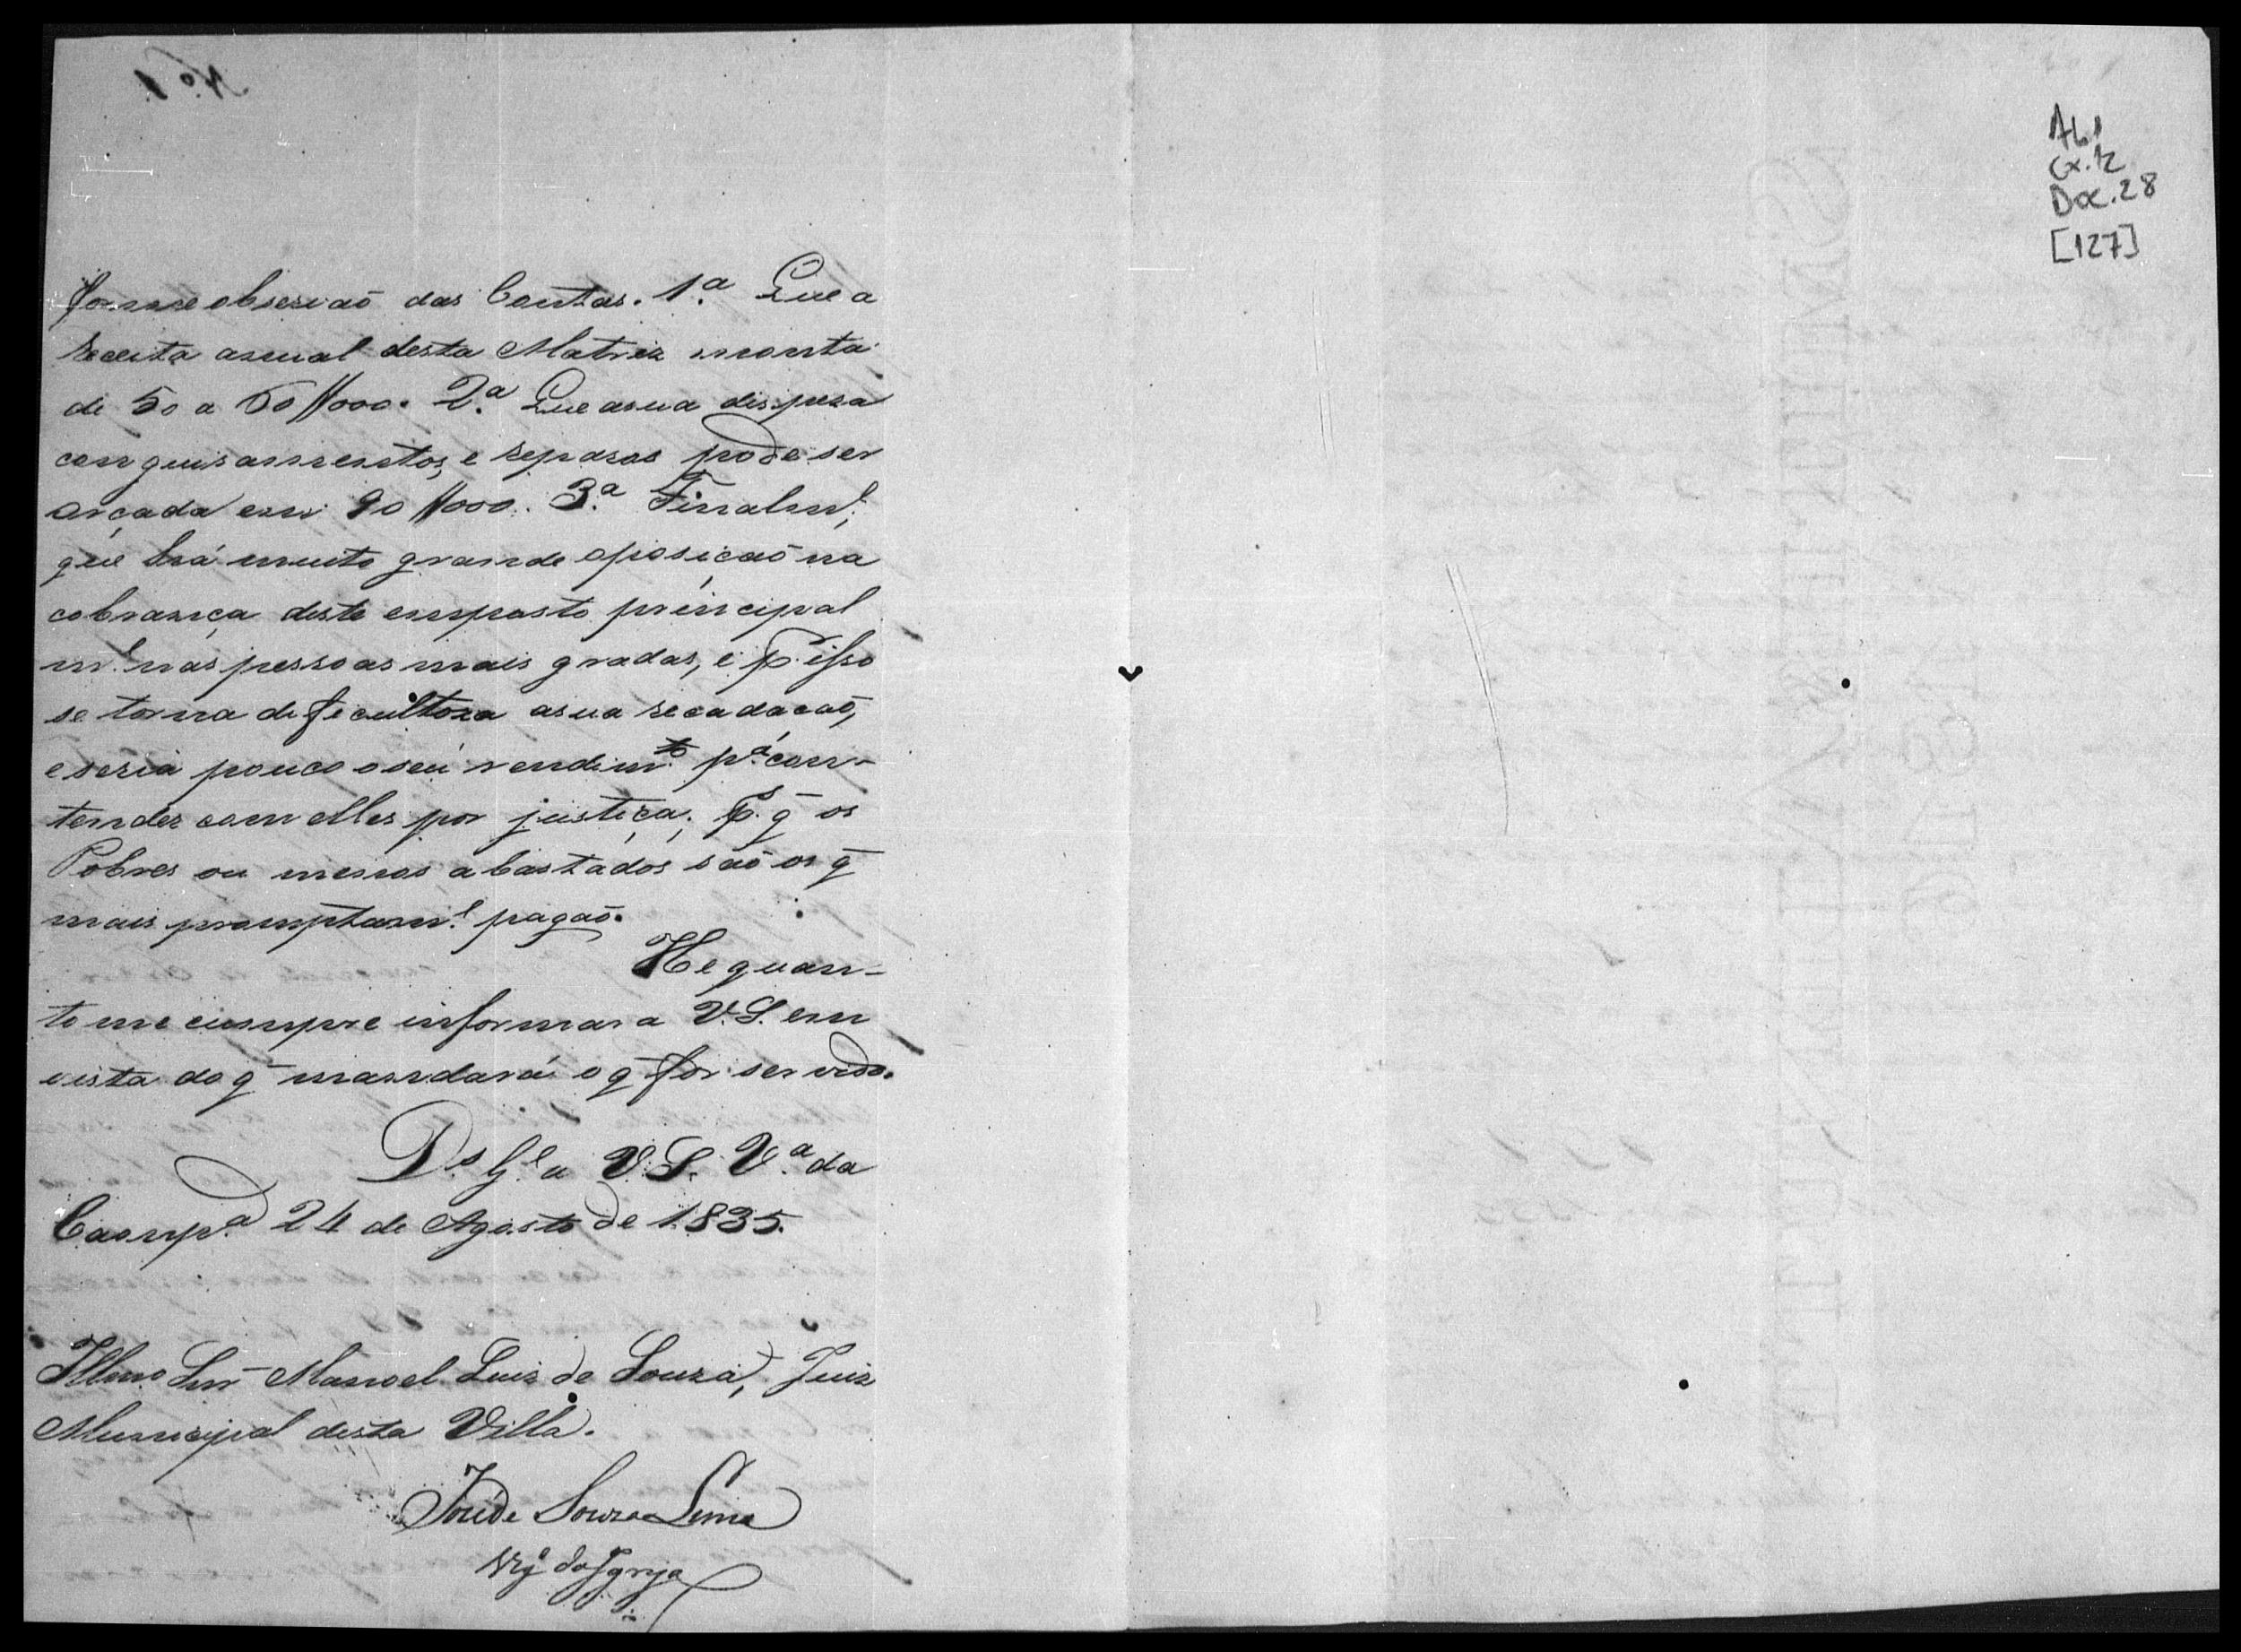 forme observaõ das Contas. 1.ª Que a
Receita anual desta Matriz monta
de 50 a 60//000. 2.ª Que a sua dispeza
com guisamentos, e reparos pode ser
orçada em 90//000. 3.ª Finalm.e,
que há muito grande oposicaõ na
cobrança deste emposto principal
m.e nas pessoas mais gradas, e p. isso
se torna deficultoza a sua recadacaõ,
e seria pouco o seu rendim.to p.ª con-
tender com elles por justiça; p. q̃ os
Pobres ou menos abastados saõ os q̃
mais promptam.e pagaõ.
He quan-
to me cumpre informar a V.S. em
vista do q̃ mandará o q̃ for servido.
D.s G.e a V.S. V.ª da
Camp.ª 24 de Agosto de 1835.
Illmo Snr Manoel Luis de Souza, Juiz
Municipal desta Villa.
José de Souza Lima
Vig.º da Igreja
Nº 1.
Cx. 12
Doc. 28
[127]